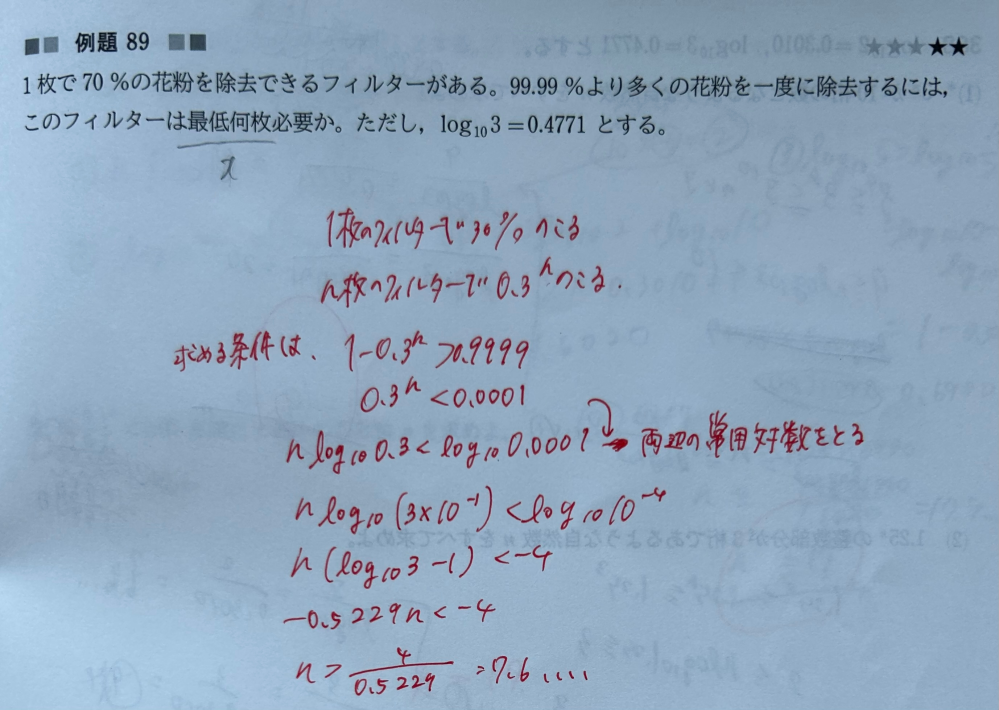 ■■ 例題 89 ■■ ★★★★★
1枚で70 %の花粉を除去できるフィルターがある。99.99 %より多くの花粉を一度に除去するには,
このフィルターは最低何枚必要か。ただし, log₁₀3=0.4771 とする。
x
1枚のフィルターで30%のこる
n枚のフィルターで0.3ⁿのこる.
求める条件は、 1-0.3ⁿ>0.9999
0.3ⁿ<0.0001
n log₁₀0.3<log₁₀0.0001 → 両辺の常用対数をとる
n log₁₀(3×10⁻¹)<log₁₀10⁻⁴
n(log₁₀3-1)<-4
-0.5229n<-4
n> 4/0.5229 =7.6....